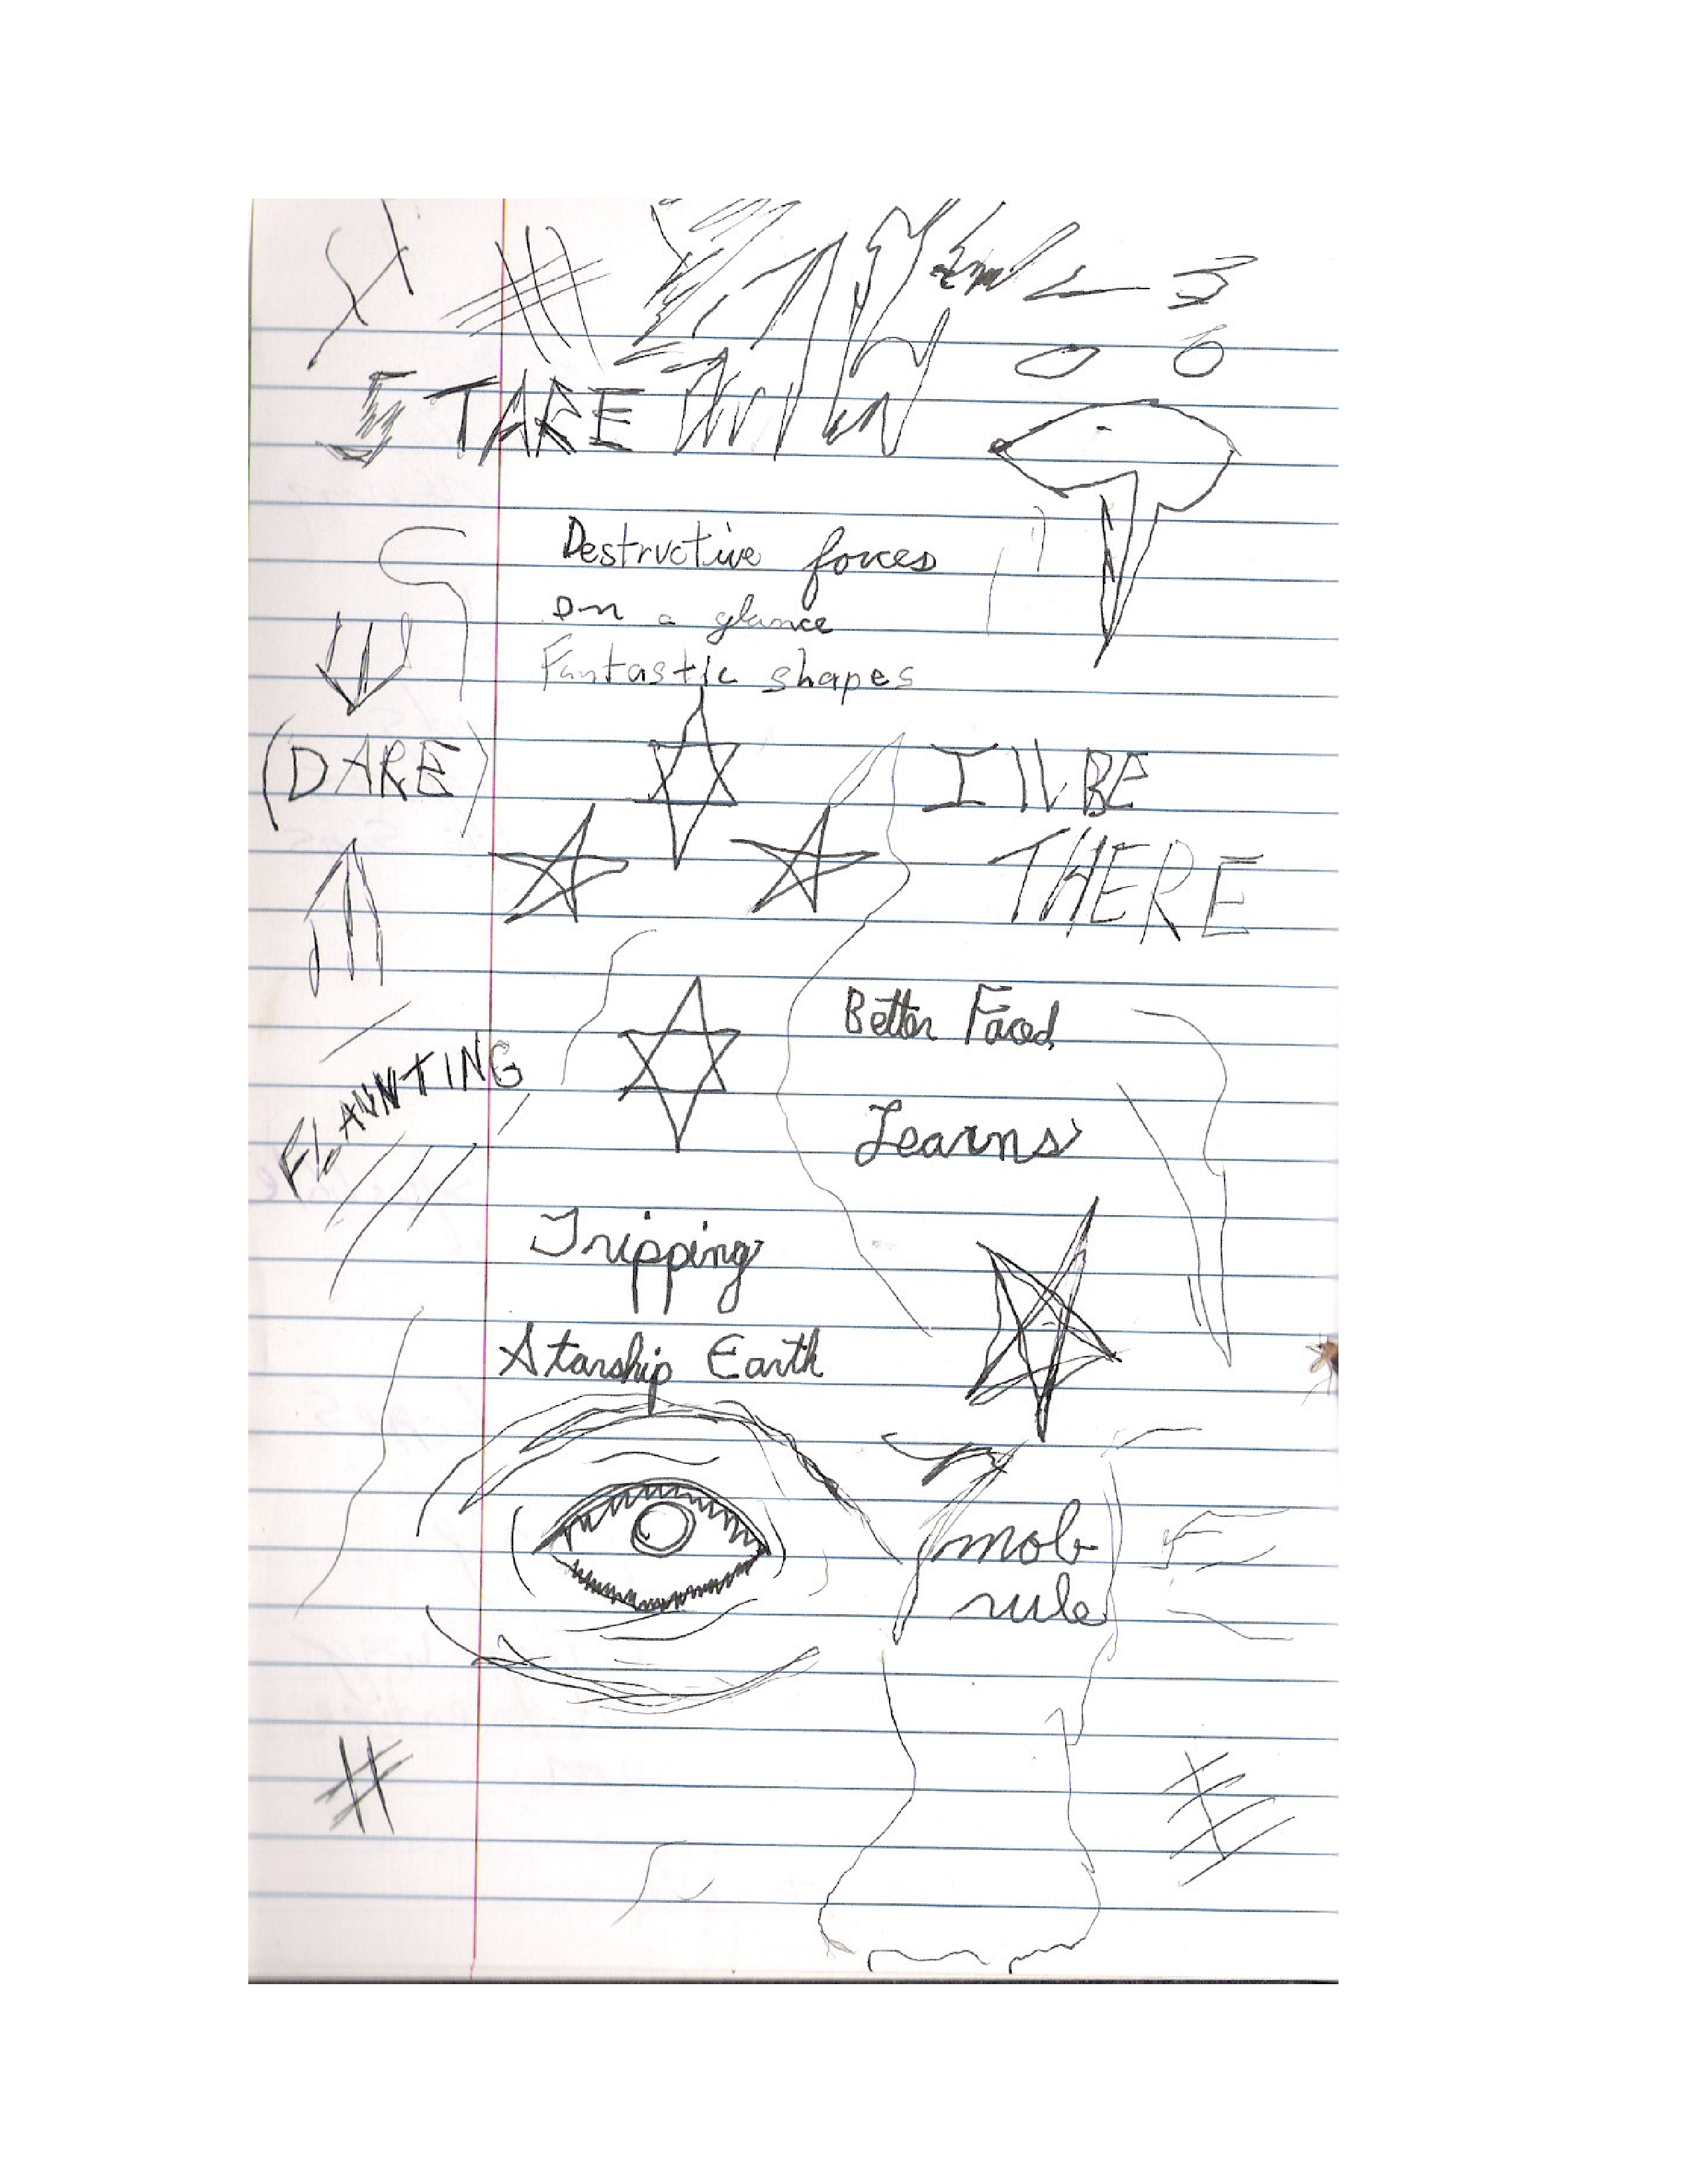 STARE
Destructive forces
on a glance
Fantastic shapes
(DARE)
I'll BE
THERE
Better Faced
FLAUNTING
Learns
Tripping
Starship Earth
mob
rule